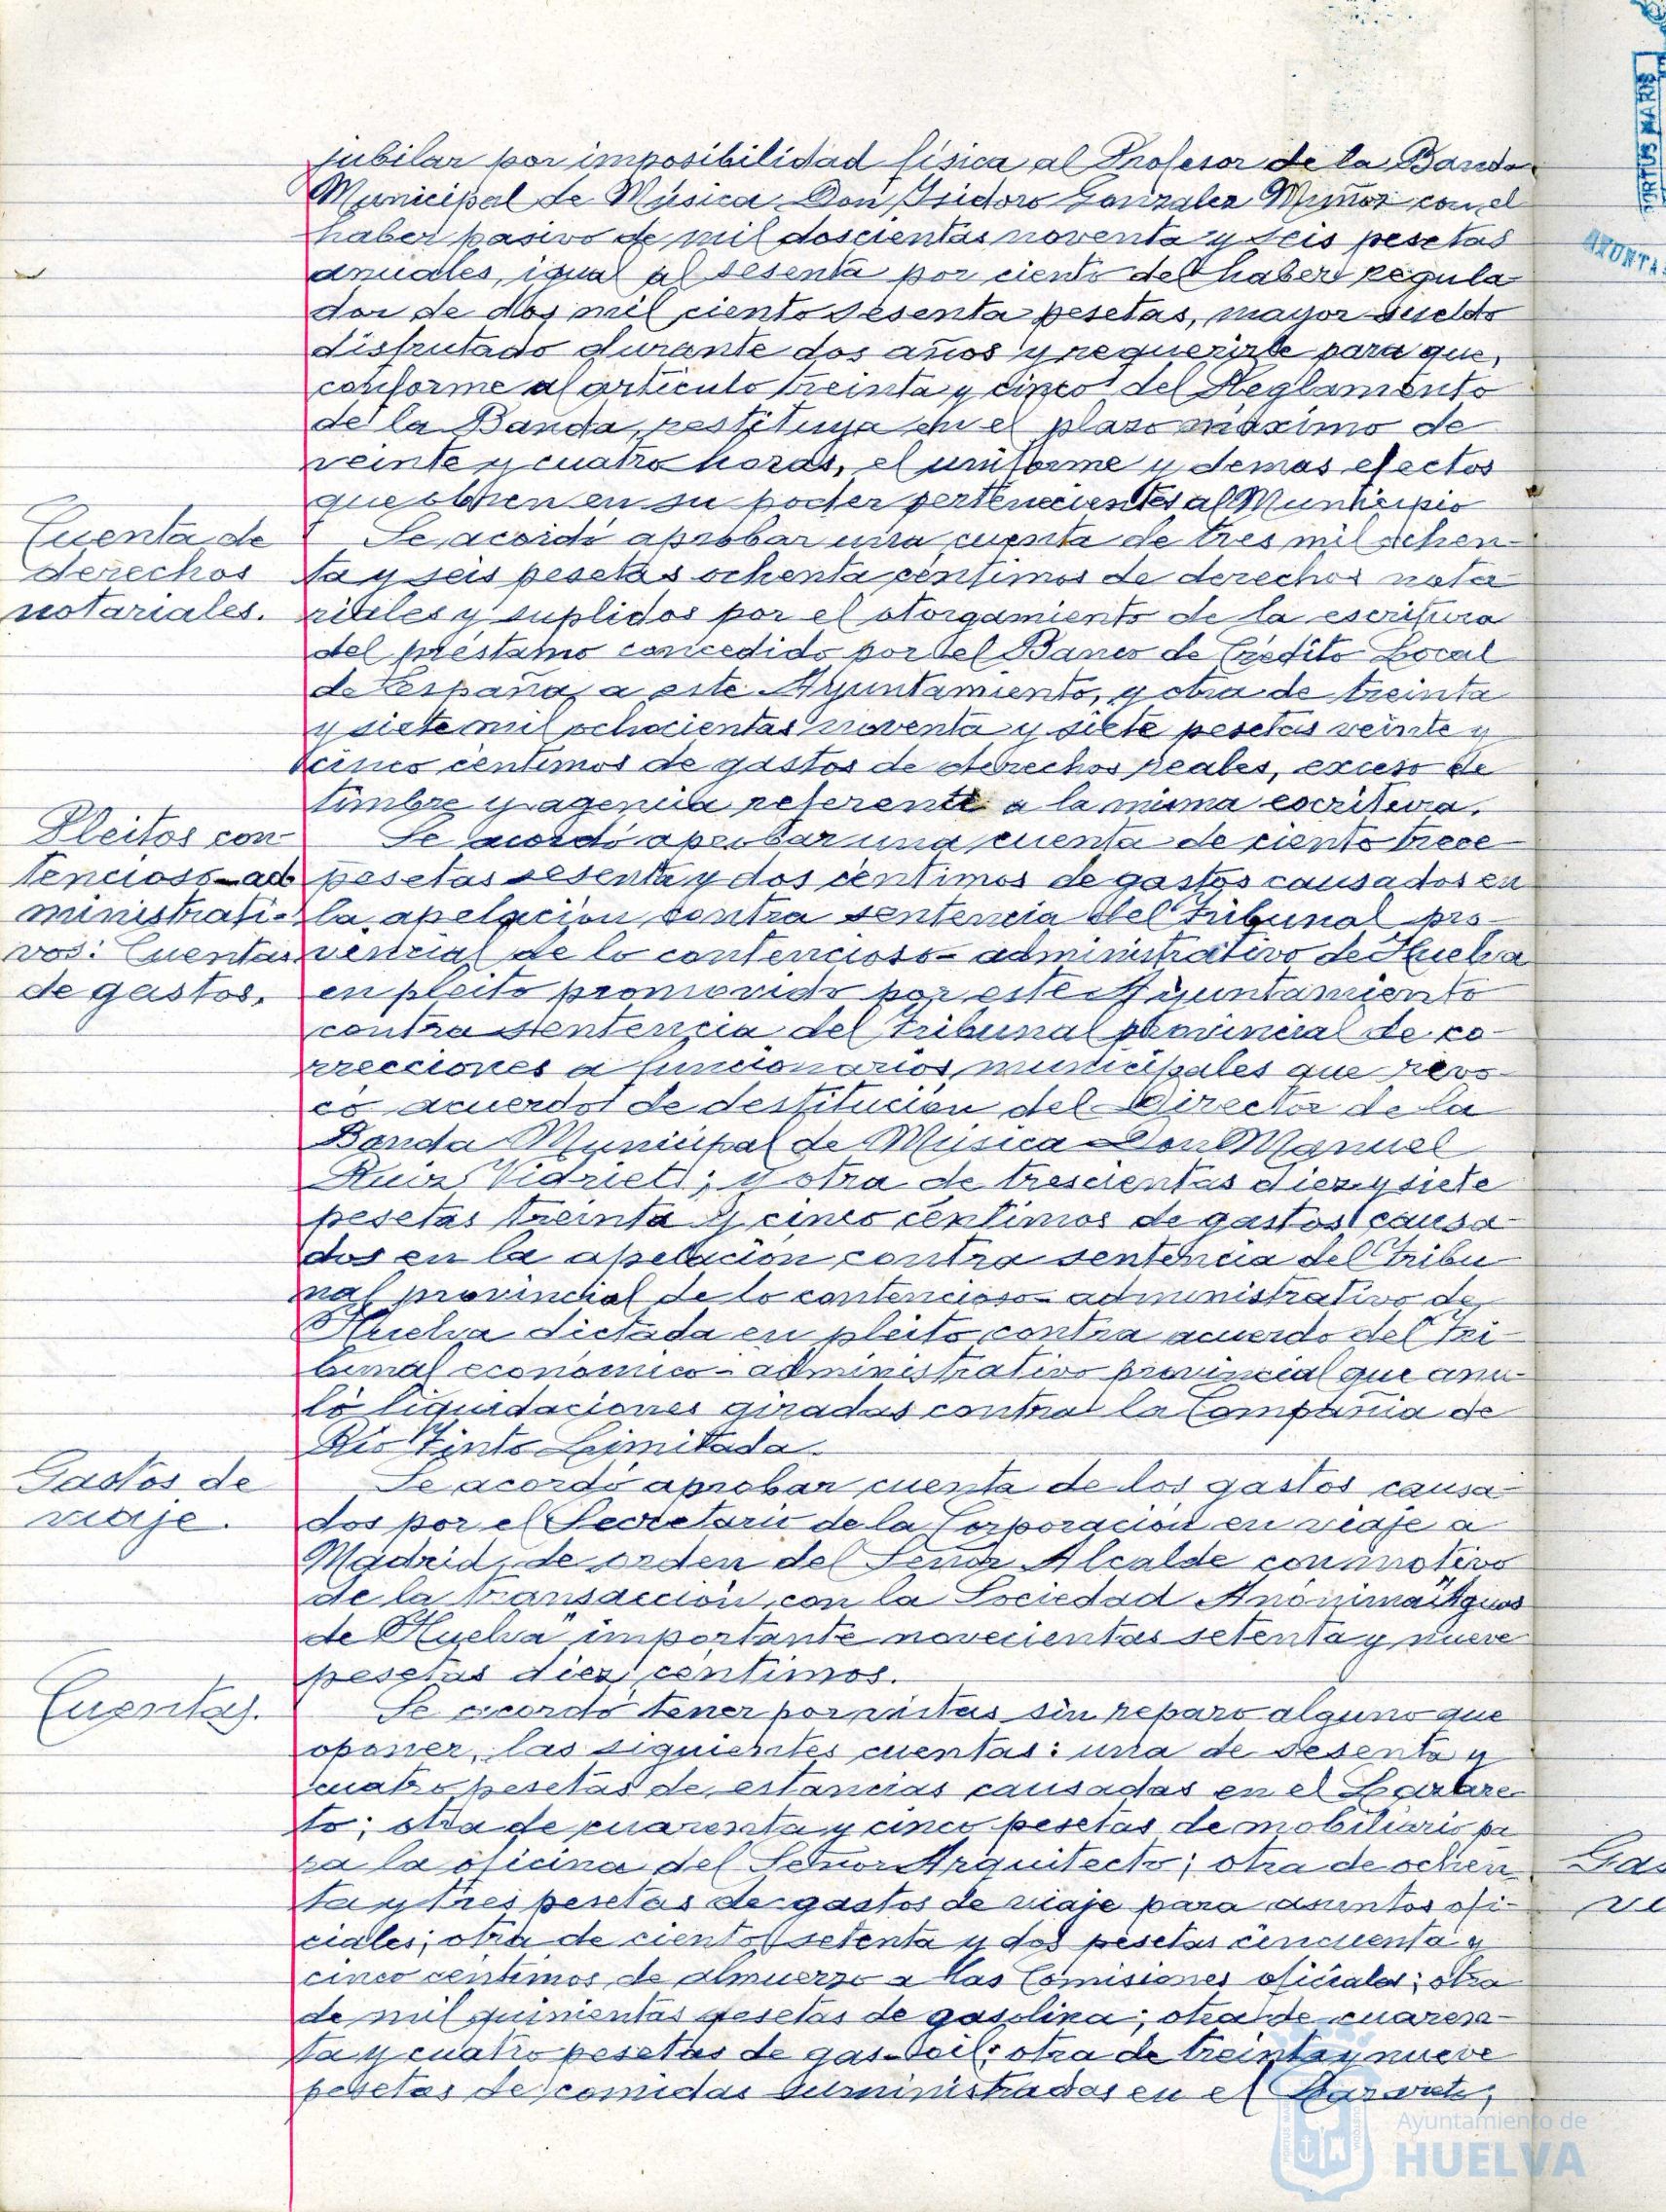 jubilar por imposibilidad física al Profesor de la Banda
Municipal de Música Don Isidoro Gonzalez Muñoz con el
haber pasivo de mil doscientas noventa y seis pesetas
anuales, igual al sesenta por ciento del haber regula-
dor de dos mil ciento sesenta pesetas, mayor sueldo
disfrutado durante dos años y requerirle para que,
conforme al artículo treinta y cinco del Reglamento
de la Banda, restituya en el plazo máximo de
veinte y cuatro horas, el uniforme y demas efectos
que obren en su poder pertenecientes al Municipio
Cuenta de
derechos
notariales.
Se acordó aprobar una cuenta de tres mil ochen-
ta y seis pesetas ochenta céntimos de derechos nota-
riales y suplidos por el otorgamiento de la escritura
del préstamo concedido por el Banco de Crédito Local
de España, a este Ayuntamiento, y otra de treinta
y siete mil ochocientas noventa y siete pesetas veinte y
cinco céntimos de gastos de derechos reales, exceso de
timbre y agencia referente a la misma escritura.
Pleitos con-
tencioso-ad-
ministrati-
vos: Cuentas
de gastos.
Se acordó aprobar una cuenta de ciento trece
pesetas sesenta y dos céntimos de gastos causados en
la apelación contra sentencia del Tribunal pro-
vencial de lo contencioso-administrativo de Huelva
en pleito promovido por este Ayuntamiento
contra sentencia del Tribunal provincial de co-
rrecciones a funcionarios municipales que revo-
có acuerdo de destitución del Director de la
Banda Municipal de Música Don Manuel
Ruiz Vidriet; y otra de trescientas diez y siete
pesetas treinta y cinco céntimos de gastos causa-
dos en la apelación contra sentencia del Tribu-
nal provincial de lo contencioso-administrativo de
Huelva dictada en pleito contra acuerdo del Tri-
bunal económico-administrativo provincial que anu-
ló liquidaciones giradas contra la Compañia de
Rio Tinto Limitada.
Gastos de
viaje.
Se acordó aprobar cuenta de los gastos causa-
dos por el Secretario de la Corporación en viaje a
Madrid, de orden del Señor Alcalde con motivo
de la transacción con la Sociedad Anónima "Aguas
de Huelva" importante novecientas setenta y nueve
pesetas diez céntimos.
Cuentas.
Se acordó tener por vistas sin reparo alguno que
oponer, las siguientes cuentas: una de sesenta y
cuatro pesetas de estancias causadas en el Lazare-
to; otra de cuarenta y cinco pesetas de mobiliario pa
ra la oficina del Señor Arquitecto; otra de ochen
ta y tres pesetas de gastos de viaje para asuntos ofi-
ciales; otra de ciento setenta y dos pesetas cincuenta y
cinco céntimos de almuerzo a las Comisiones oficiales; otra
de mil quinientas pesetas de gasolina; otra de cuaren-
ta y cuatro pesetas de gas-oil; otra de treinta y nueve
pesetas de comidas suministradas en el Lazareto;
PORTUS MARIS
AYUNTA
Gas
vi
Ayuntamiento de
HUELVA